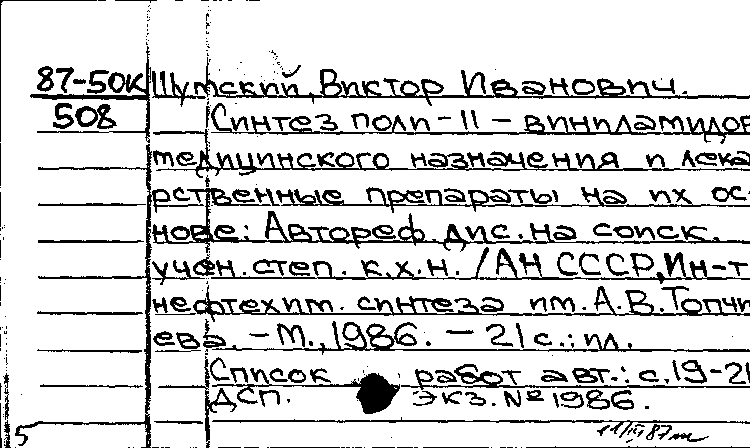 87-50К Шумский, Виктор Иванович.
508 Синтез поли-N-виниламидов
медицинского назначения и лека
рственные препараты на их ос
нове: Автореф. дис. на соиск.
учен. степ. к.х.н. /АН СССР, Ин-т
нефтехим. синтеза им. А.В. Топчи
ева. - М., 1986. - 21 с.: ил.
Список работ авт.: с. 19-21
ДСП. Экз. № 1986.
5